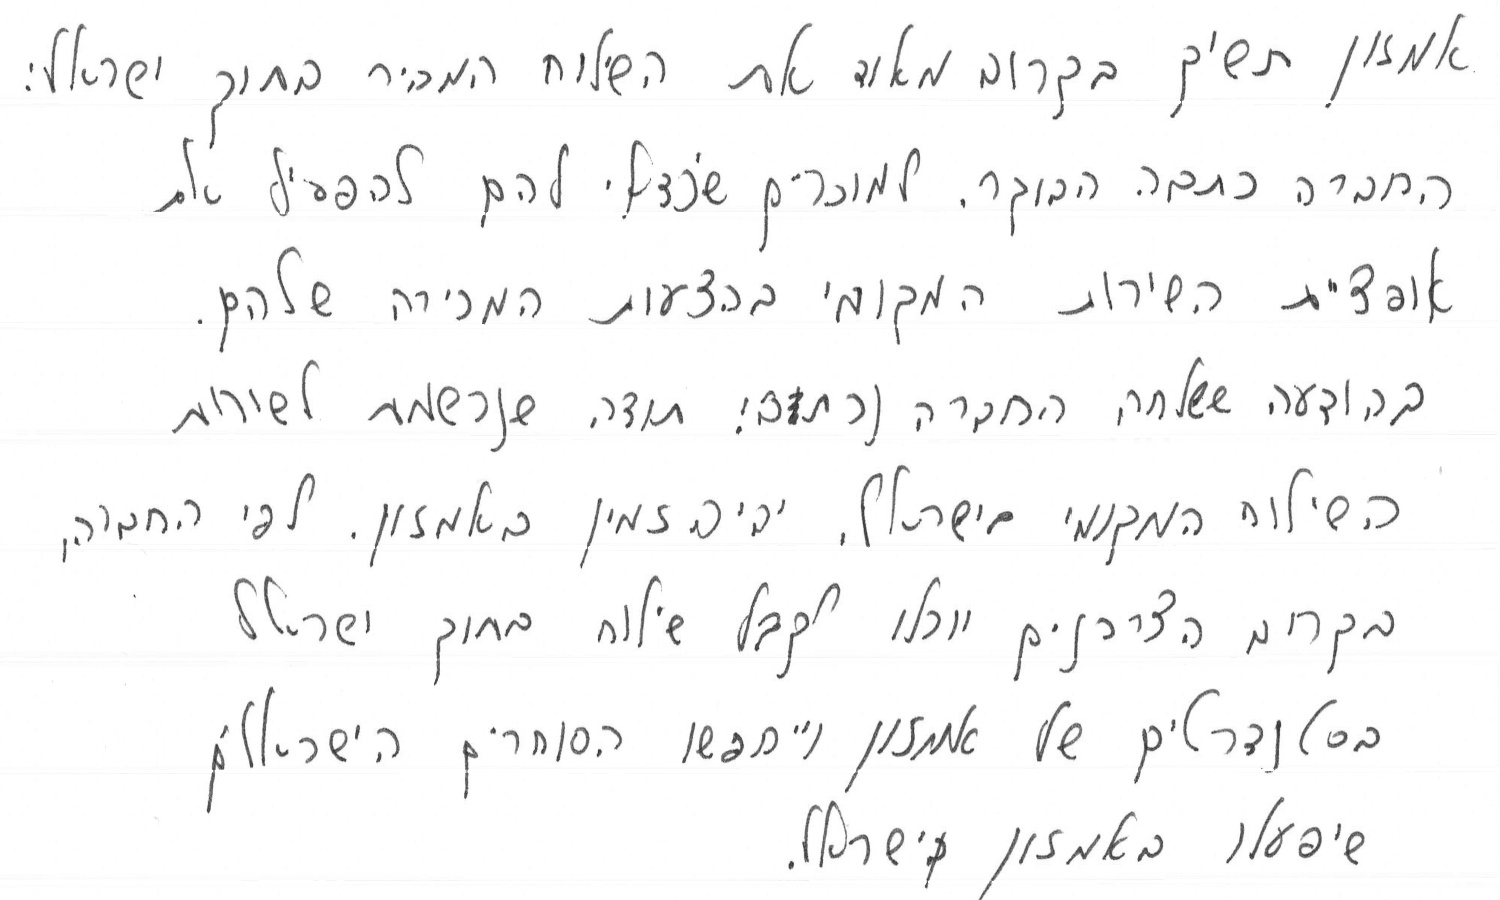 אמזון תשיק בקרוב מאוד את השילוח המהיר בתוך ישראל:
החברה כתבה הבוקר, למוכרים שכדאי להם להפעיל את
אופציית השירות המקומי בהצעות המכירה שלהם.
בהודעה ששלחה החברה נכתב: תודה שנרשמת לשירות
השילוח המקומי בישראל, יהיה זמין באמזון. לפי החברה,
בקרוב הצרכנים יוכלו לקבל שילוח בתוך ישראל
בסטנדרטים של אמזון וייחפשו הסוחרים הישראלים
שיפעלו באמזון ישראל.